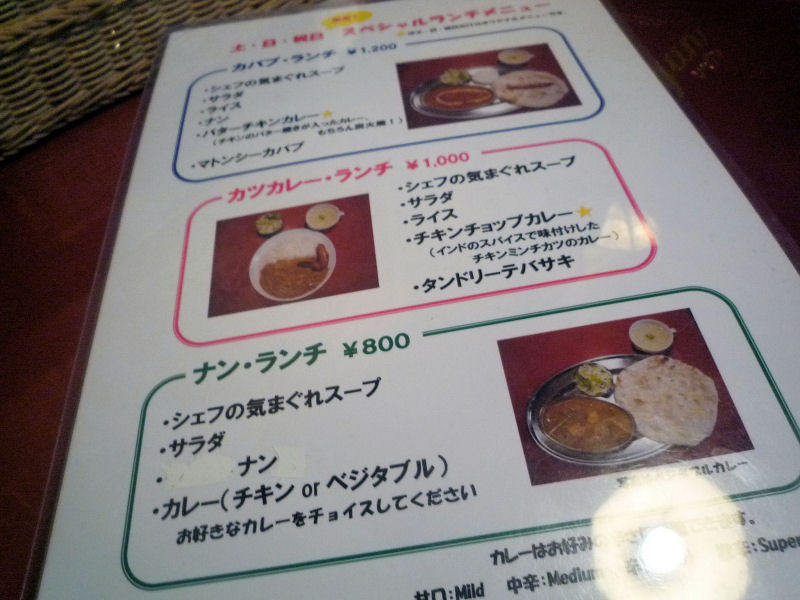 土・日・祝日 スペシャルランチメニュー
カバブ・ランチ ¥1,200
・シェフの気まぐれスープ
・サラダ
・ライス
・ナン
・バターチキンカレー★
(チキンのバター焼きが入ったカレー。
もちろん炭火焼！)
・マトンシーカバブ
カツカレー・ランチ ¥1,000
・シェフの気まぐれスープ
・サラダ
・ライス
・チキンチョップカレー★
(インドのスパイスで味付けした
チキンミンチカツのカレー)
・タンドリーテバサキ
ナン・ランチ ¥800
・シェフの気まぐれスープ
・サラダ
・ ナン
・カレー(チキン or ベジタブル)
お好きなカレーをチョイスしてください
カレーはお好みの
できます。
甘口:Mild 中辛:Medium
:Super